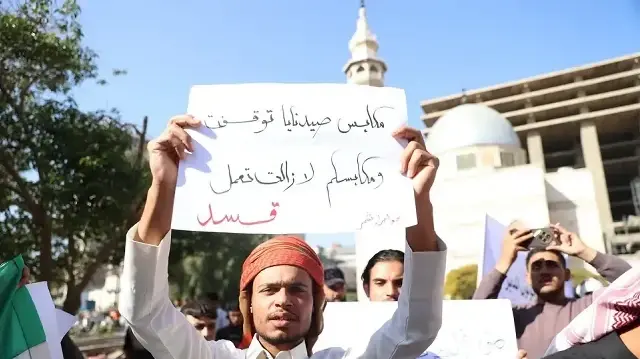 مكابس صيدنايا توقفت
ومكابسكم لا زالت تعمل
قسد